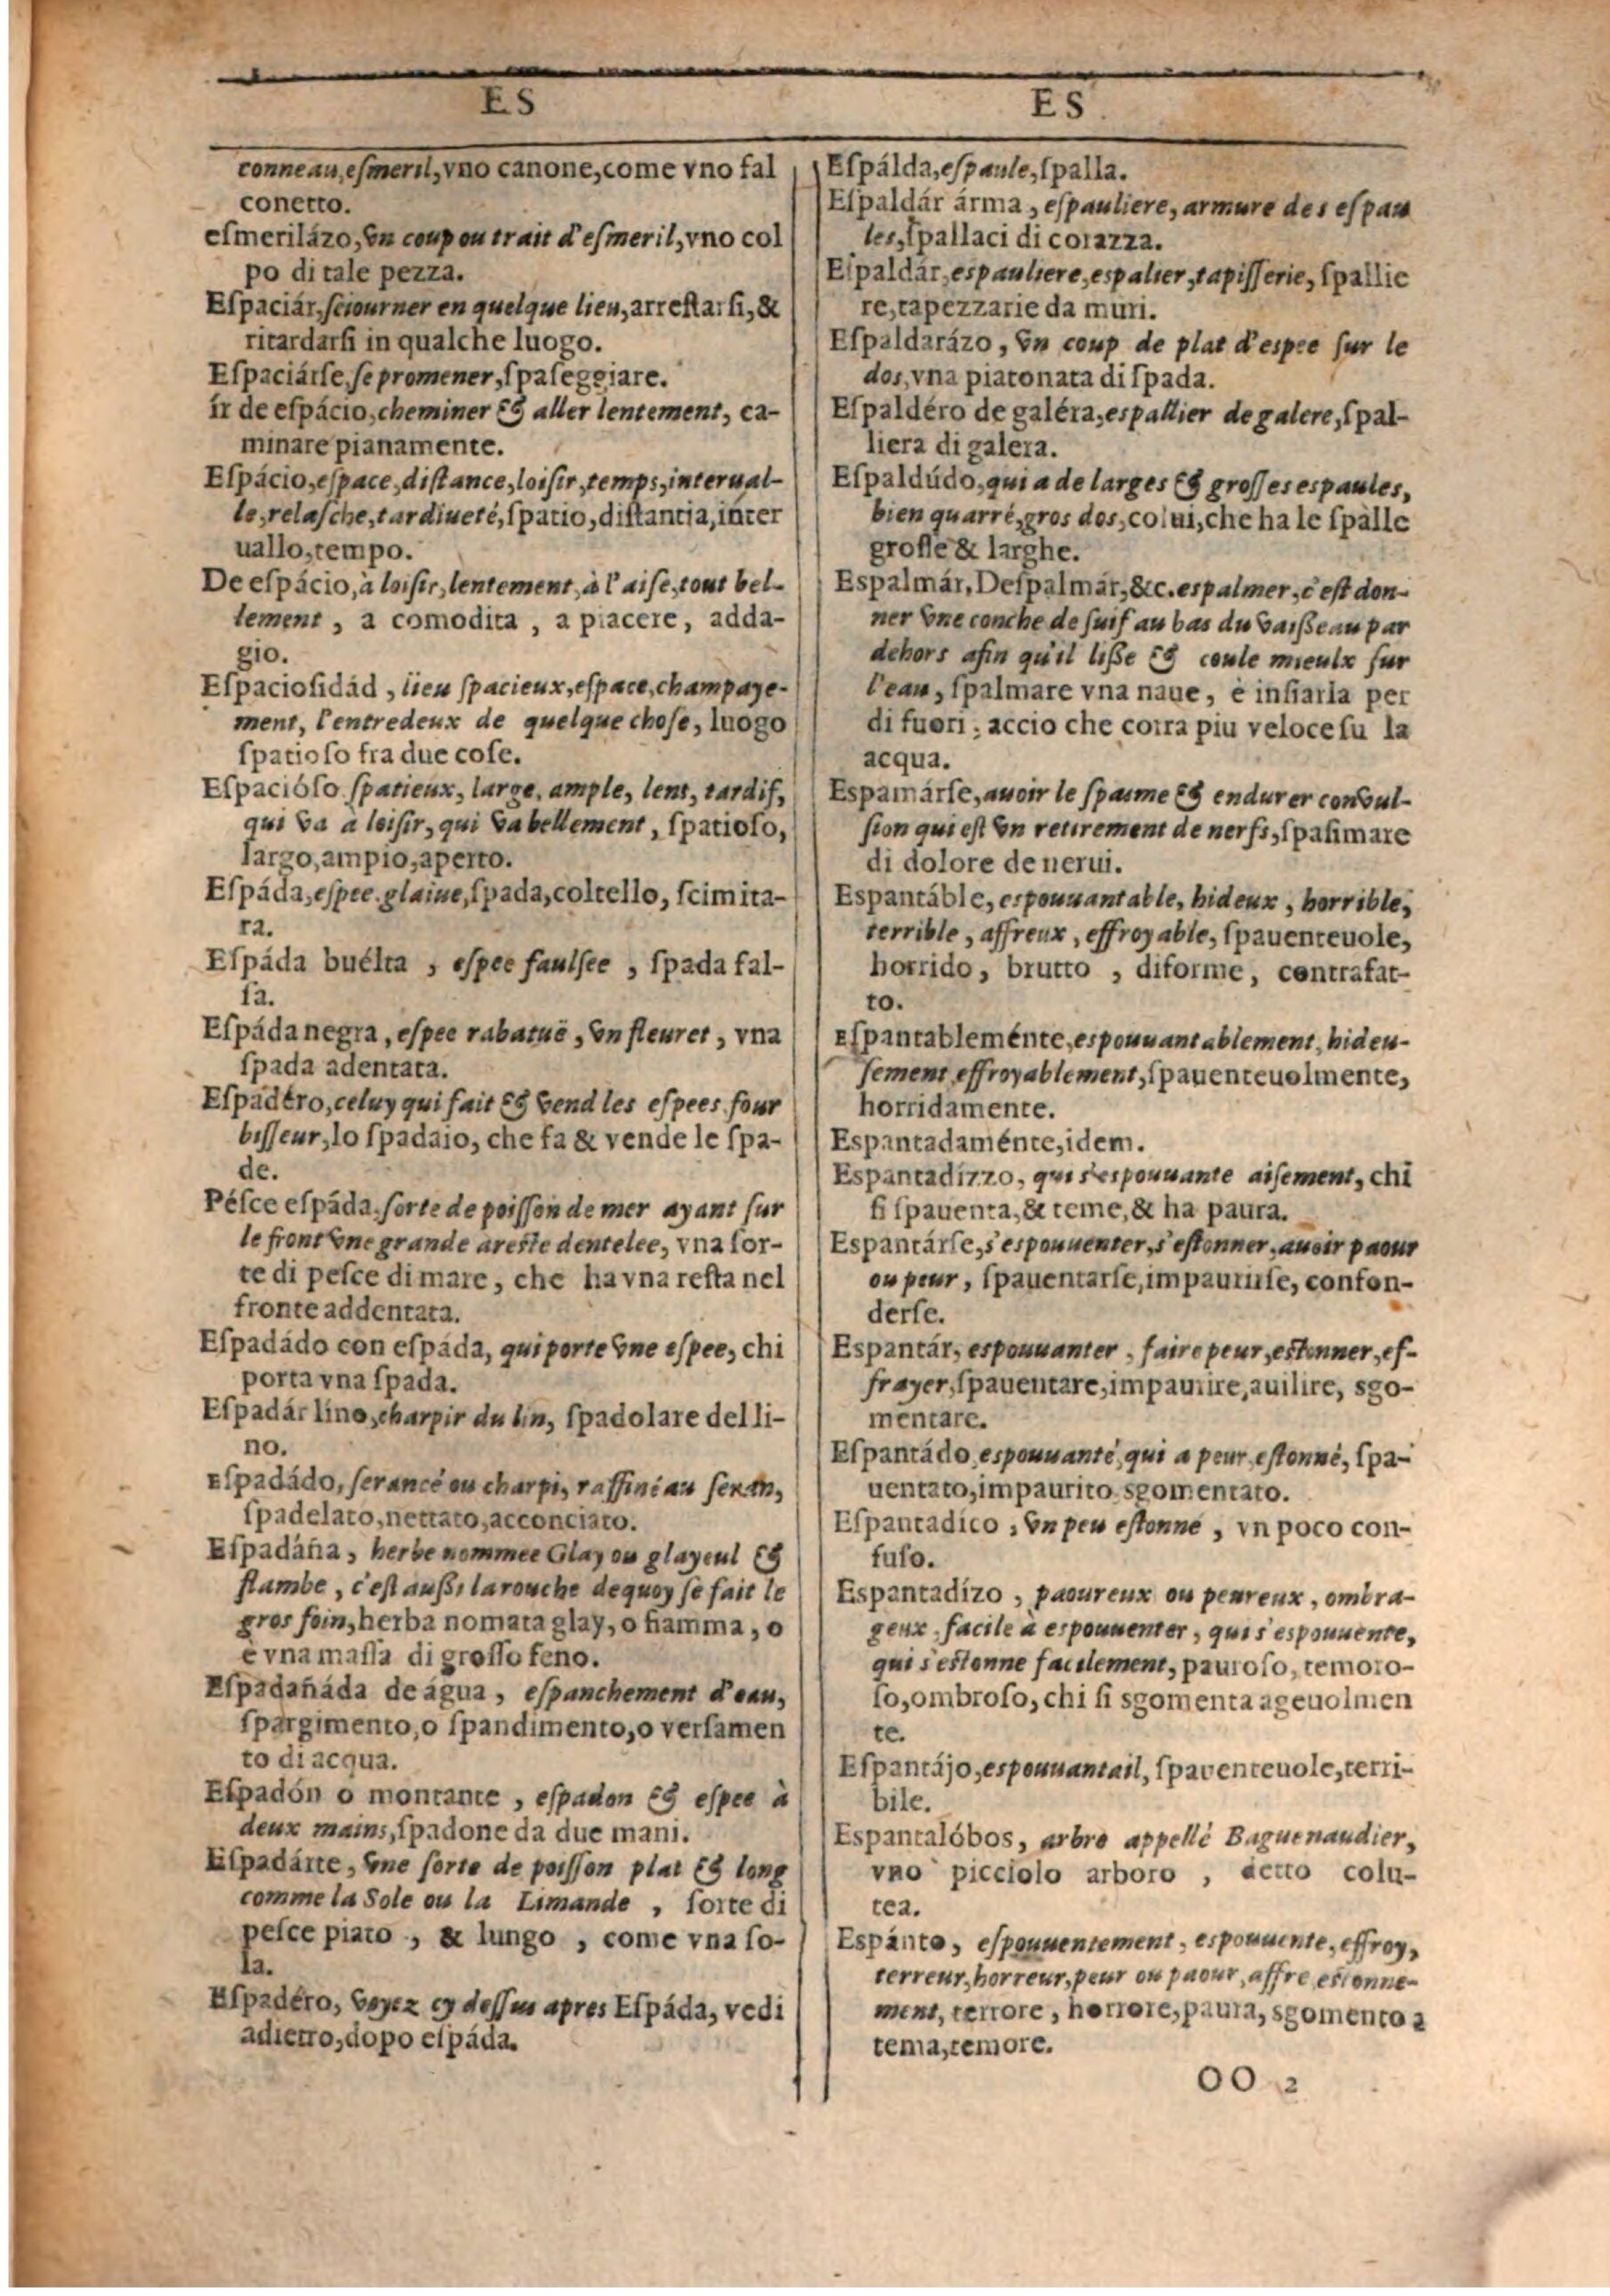 ES
conneau, eſmeril, vno canone, come vno fal
conetto.
eſmerilázo, vn coup ou trait d'eſmeril, vno col
po di tale pezza.
Eſpaciár, ſeiourner en quelque lieu, arreſtarſi, &
ritardarſi in qualche luogo.
Eſpaciárſe, ſe promener, ſpaſeggiare.
ír de eſpácio, cheminer & aller lentement, ca-
minare pianamente.
Eſpácio, eſpace, diſtance, loiſir, temps, interual-
le, relaſche, tardiueté, ſpatio, diſtantia, inter
uallo, tempo.
De eſpácio, à loiſir, lentement, à l'aiſe, tout bel-
lement, a comodita, a piacere, adda-
gio.
Eſpacioſidád, lieu ſpacieux, eſpace, champaye-
ment, l'entredeux de quelque choſe, luogo
ſpatioſo fra due coſe.
Eſpacióſo ſpatieux, large, ample, lent, tardif,
qui va à loiſir, qui va bellement, ſpatioſo,
largo, ampio, aperto.
Eſpáda, eſpee, glaiue, ſpada, coltello, ſcimita-
ra.
Eſpáda buélta, eſpee faulſee, ſpada fal-
ſa.
Eſpáda negra, eſpee rabatuë, vn fleuret, vna
ſpada adentata.
Eſpadéro, celuy qui fait & vend les eſpees, four
biſſeur, lo ſpadaio, che fa & vende le ſpa-
de.
Péſce eſpáda, ſorte de poiſſon de mer ayant ſur
le front vne grande areſte dentelee, vna ſor-
te di peſce di mare, che ha vna reſta nel
fronte addentata.
Eſpadádo con eſpáda, qui porte vne eſpee, chi
porta vna ſpada.
Eſpadár líno, charpir du lin, ſpadolare del li-
no.
Eſpadádo, ſerancé ou charpi, raffiné au ſeran,
ſpadelato, nettato, acconciato.
Eſpadáña, herbe nommee Glay ou glayeul &
flambe, c'eſt auſſi la rouche dequoy ſe fait le
gros foin, herba nomata glay, o fiamma, o
è vna maſſa di groſſo feno.
Eſpadañáda de água, eſpanchement d'eau,
ſpargimento, o ſpandimento, o verſamen
to di acqua.
Eſpadón o montante, eſpadon & eſpee à
deux mains, ſpadone da due mani.
Eſpadárte, vne ſorte de poiſſon plat & long
comme la Sole ou la Limande, ſorte di
peſce piato, & lungo, come vna ſo-
la.
Eſpadéro, voyez cy deſſus apres Eſpáda, vedi
adietro, dopo eſpáda.
ES
Eſpálda, eſpaule, ſpalla.
Eſpaldár árma, eſpauliere, armure des eſpau
les, ſpallaci di corazza.
Eſpaldár, espauliere, espalier, tapiſſerie, ſpallie
re, tapezzarie da muri.
Eſpaldarázo, vn coup de plat d'espee ſur le
dos, vna piatonata di ſpada.
Eſpaldéro de galéra, espallier de galere, ſpal-
liera di galera.
Eſpaldúdo, qui a de larges & groſſes espaules,
bien quarré, gros dos, colui, che ha le ſpalle
groſſe & larghe.
Espalmár, Deſpalmár, &c. espalmer, c'eſt don-
ner vne couche de ſuif au bas du vaiſſeau par
dehors afin qu'il liſſe & coule mieulx ſur
l'eau, ſpalmare vna naue, è inſiarla per
di fuori, accio che corra piu veloce ſu la
acqua.
Espamárſe, auoir le ſpaſme & endurer convul-
ſion qui eſt vn retirement de nerfs, ſpaſimare
di dolore de nerui.
Espantáble, espouuantable, hideux, horrible,
terrible, affreux, effroyable, ſpauenteuole,
horrido, brutto, diforme, contrafat-
to.
Eſpantableménte, espouuantablement, hideu-
ſement effroyablement, ſpauenteuolmente,
horridamente.
Espantadaménte, idem.
Espantadízzo, qui s'espouuante aiſement, chi
ſi ſpauenta, & teme, & ha paura.
Espantárſe, s'espouuenter, s'eſtonner, auoir paour
ou peur, ſpauentarſe, impaurirſe, confon-
derſe.
Espantár, espouuanter, faire peur, eſtonner, ef-
frayer, ſpauentare, impaurire, auilire, sgo-
mentare.
Eſpantádo espouuanté, qui a peur, eſtonné, ſpa-
uentato, impaurito sgomentato.
Eſpantadíco, vn peu eſtonné, vn poco con-
fuſo.
Espantadízo, paoureux ou peureux, ombra-
geux, facile à espouuenter, qui s'espouuente,
qui s'eſtonne facilement, pauroſo, temoro-
ſo, ombroſo, chi ſi sgomenta ageuolmen
te.
Eſpantájo, espouuantail, ſpauenteuole, terri-
bile.
Espantalóbos, arbre appellé Baguenaudier,
vno picciolo arboro, detto colu-
tea.
Espánto, eſpouuentement, espouuente, effroy,
terreur, horreur, peur ou paour, affre eſtonne-
ment, terrore, horrore, paura, sgomento
tema, temore.
OO 2